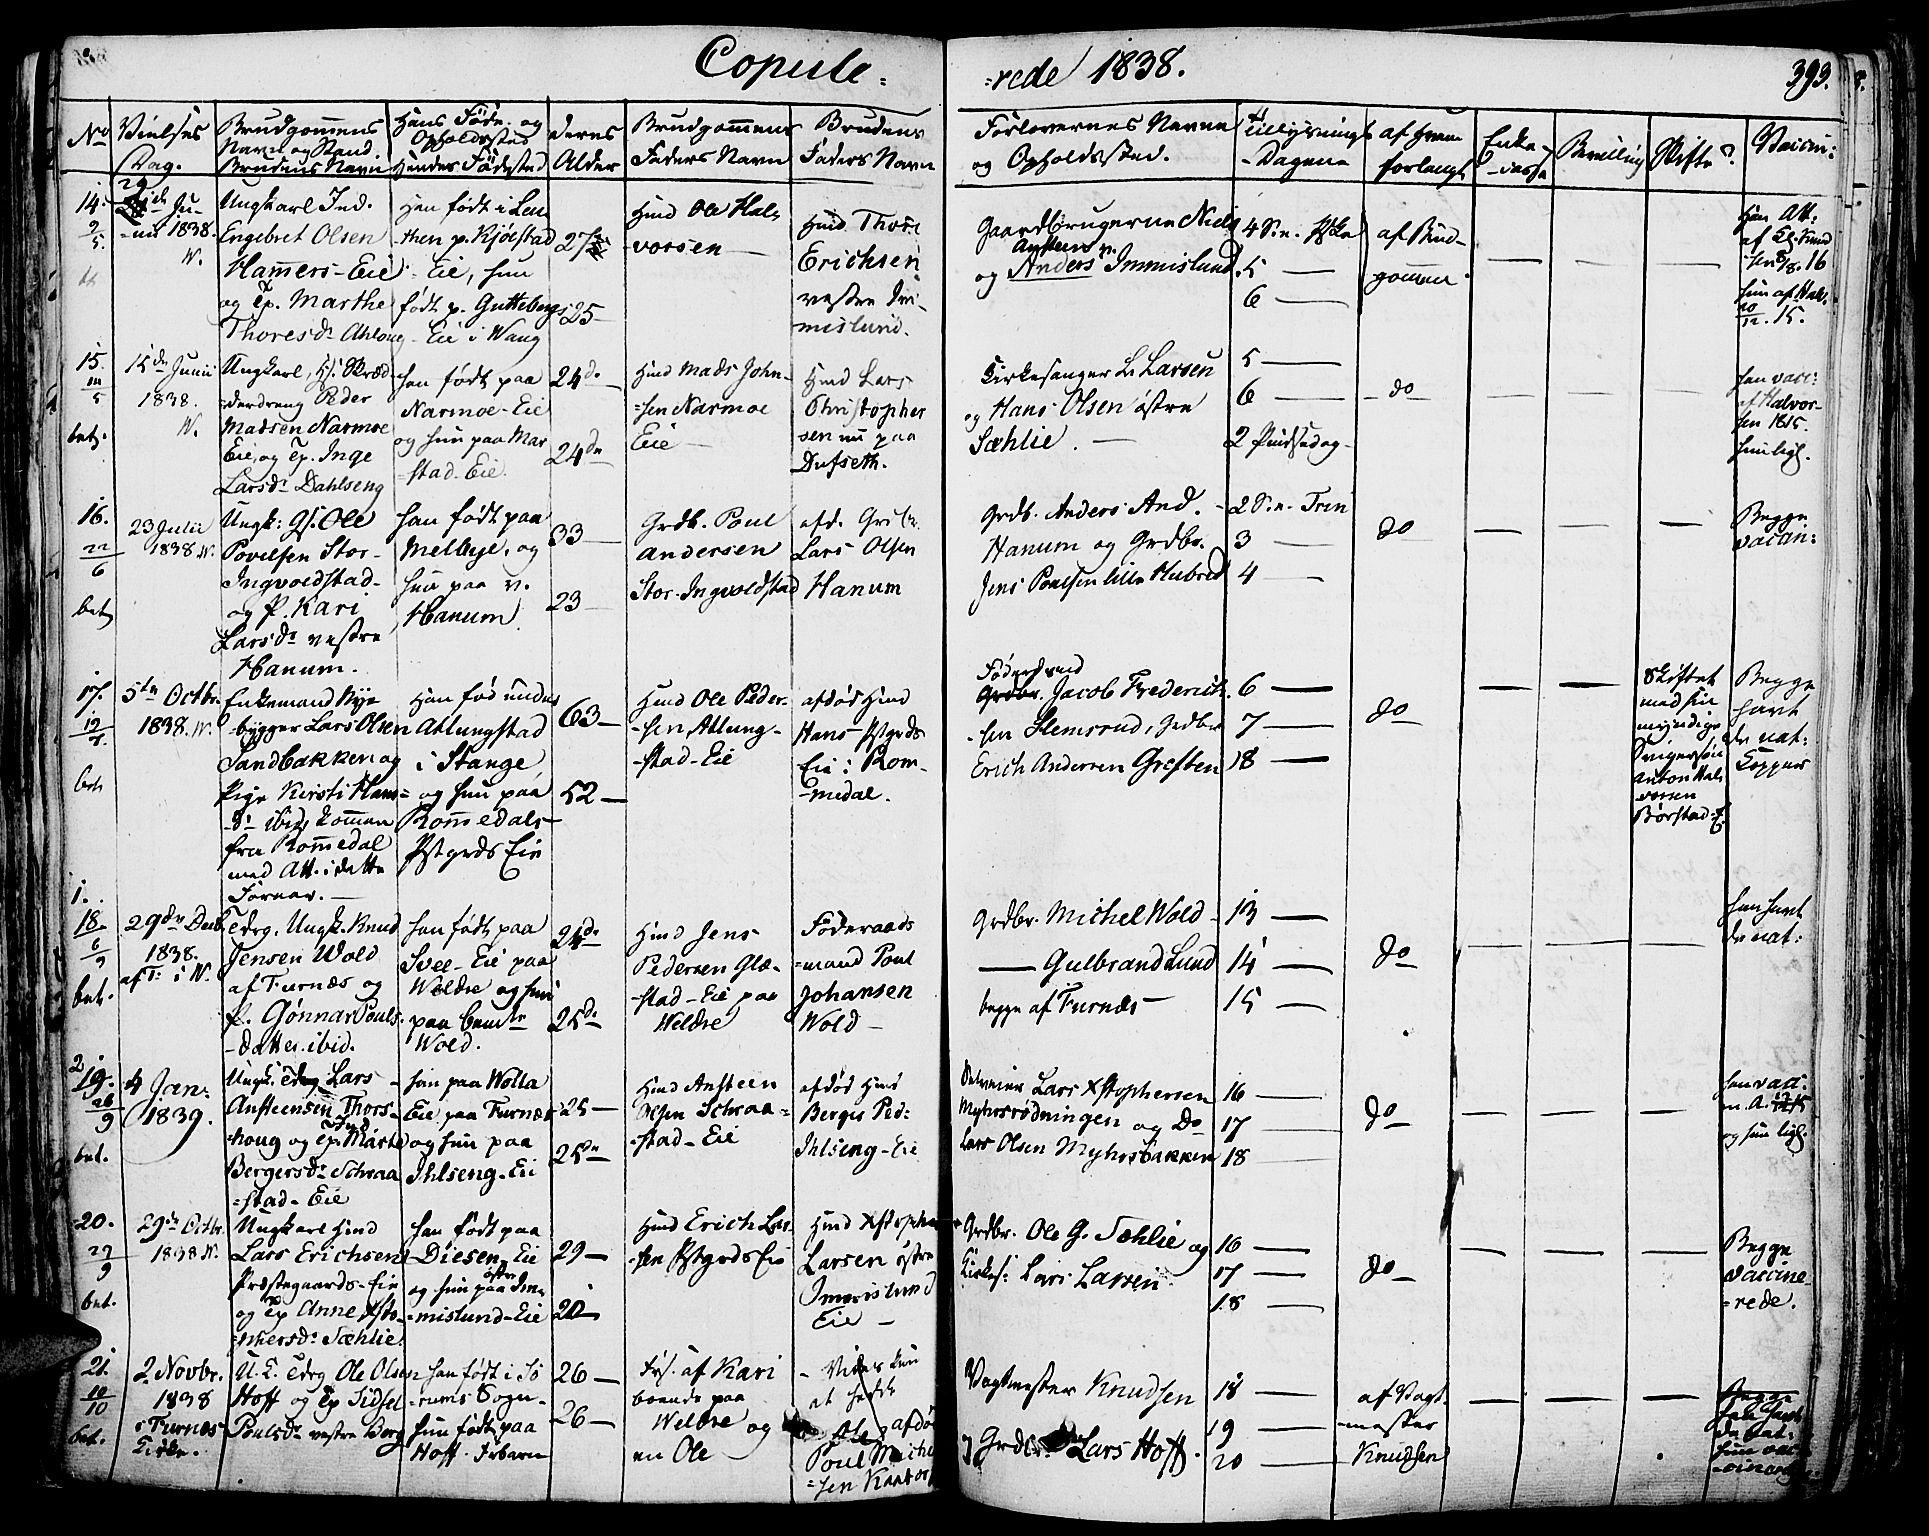 Copule=
=rede 1838.
393.
No
Vielses Dag.
Brudgommens Navn og Stand
Brudens Navn
Hans Føde- og Opholdssted
Hendes Fødested
Deres Alder
Brudgommens Faders Navn
Brudens Faders Navn
Forlovernes Navne og Opholdssted.
Tillysnings-Dagene
af hvem forlangt
Enke-Cassa
Bevilling
Skifte
Vaccin:
14.
9/5
Juni 1838.
W.
Ungkarl Ind.
Engebret Olsen
Hamers-Eie
og Tp. Marthe
Thoresdr Ahloug
Han født i Leu
-then p. Kjølstad
-Eie, hun
født p. Gutteberg
-Eie i Wang
27
25
Hmd Ole Hal-
vorsen
Hmd Thore
Erichsen
vestre Im-
mislund.
Gaardbrugerne Niels
og Anders Immislund.
4 S.e. Pske
5
6
af Brud-
gommen
Han Att.
af Kl. Knud
sen 8/8. 16
hun af Hal.
20/12. 15.
15.
14/5
bet.
15de Junii
1838.
W.
Ungkarl, Hj. Skræd
derdreng Peder
Madsen Narmoe
Eie, og Tp. Inge
Larsdr Dahlseng
han født paa
Narmoe-Eie
og hun paa Mar
=stad-Eie.
24de
24de
Hmd Mads John-
=sen Narmoe
Eie
Hmd Lars
Christopher
sen nu paa
Dufseth.
Kirkesanger L. Larsen
og Hans Olsen østre
Sæhlie.
5
6
2 Pindsedag
do
han vacc:
af Halvor-
sen 1815.
hun ligl.
16.
22/6
bet
23 Julii
1838 W.
Ungk: Gf. Ole
Povelsen Stor-
Ingvoldstad-
og P. Kari
Larsdr vestre
Hanum.
han født paa
Melbye, og
hun paa v.
Hanum
33
23
Grdb. Poul
Andersen
Stor-Ingvoldstad
afd. Grdbr.
Lars Olsen
Hanum
Grdb. Anders And.
Hanum og Grdbr.
Jens Poulsen lille Hubred
2 S.e. Trin
3
4
do
Begge
vaccin:
17.
bet
5te Octbr.
1838. W.
Enkemand Nye-
bygger Lars Olsen
Sandbakken og
Pige Kirsti Hans=
dr ibid, kommen
fra Rommedal
med Att. i dette
Foraar.
Han fød under
Atlungstad
i Stange,
og hun paa
Rommedals-
Pstgrds Eie
63
52
Hmd Ole Peder-
-sen Atlung-
-stad-Eie
afdød Hmd
Hans Pstgrds
Eie i Rom-
-medal.
Føderaad
Jacob Frederich-
-sen Slemsrud, Grdbr
Erich Andersen Greften
6
7
8
do
Skiftet
med sin
myndige
Anton Hal-
vorsen
Børstad-E.
Begge
havt
de nat:
Kopper
1.
18.
6/9
bet.
29de Decb.
1838.
af T: i W.
Tdrg. Ungk. Knud
Jensen Wold
af Furnæs og
P. Gønnar Pouls-
-datter ibid.
han født paa
Svee-Eie paa
Weldre og hun
paa bemte
Wold.
24de
25de
Hmd Jens
Pedersen Glæ-
-stad-Eie paa
Weldre
Føderaads
=mand Poul
Johansen
Wold
Grdbr. Michel Wold
— Gulbrand Lund
begge af Furnæs
13
14
15
do
han havt
de nat:
2.
19.
26/9
bet.
4 Jan:
1839.
Ungk. Tdrg Lars
Ansteensen Thors-
houg og Tp. Marte
Bergersdr Schraa
=stad-Eie
han paa Wolla
Eie paa Furnæs
og hun paa
Ihlseng-Eie
25
25de
Hmd Ansteen
Olsen Schraa=
=stad-Eie
afdød Hmd
Berger Ped:
Ihlseng-Eie
Selveier Lars Xstophersen
Myhrsrødningen og Do
Lars Olsen Myhrsbakken
16
17
18
do
han vacc:
og hun ligl.
20.
27/9
bet.
29de Octbr.
1838 W.
Ungkarl Hmd
Lars Erichsen
Præstegaards-Eie
og Tp Anne Xsto-
=phersdr Sæhlie
han født paa
Diesen-Eie
og hun paa østre Im-
=mislund-Eie
29
20
Hmd Erich Lar-
-sen Pstgrds Eie
Hmd Xstopher
Larsen østre
Immislund
Eie
Grdbr. Ole G. Sæhlie og
Kirkes: Lars Larsen.
16
17
18
do
Begge
vaccine-
=rede.
21.
10/10
bet.
2. Novbr.
1838
i Furnæs
Kirke.
U.K. Tdrg Ole Olsen
Hoff og Tp Sidsel
Poulsdr vestre Berg
han født i Sø
-rums Sogn-
hun født paa
Hoff. Frbarn
26
26
Frs. af Kari
boende paa
Weldre og
en Ole
Vides kun
at hedde
Ole, afdød
Poul Michel
=sen
Vagtmester Knudsen
og Grdbr. Lars Hoff.
18
19
20
af Vagt-
mester
Knudsen
Begge
han havt
de nat:
hun vac-
cineret